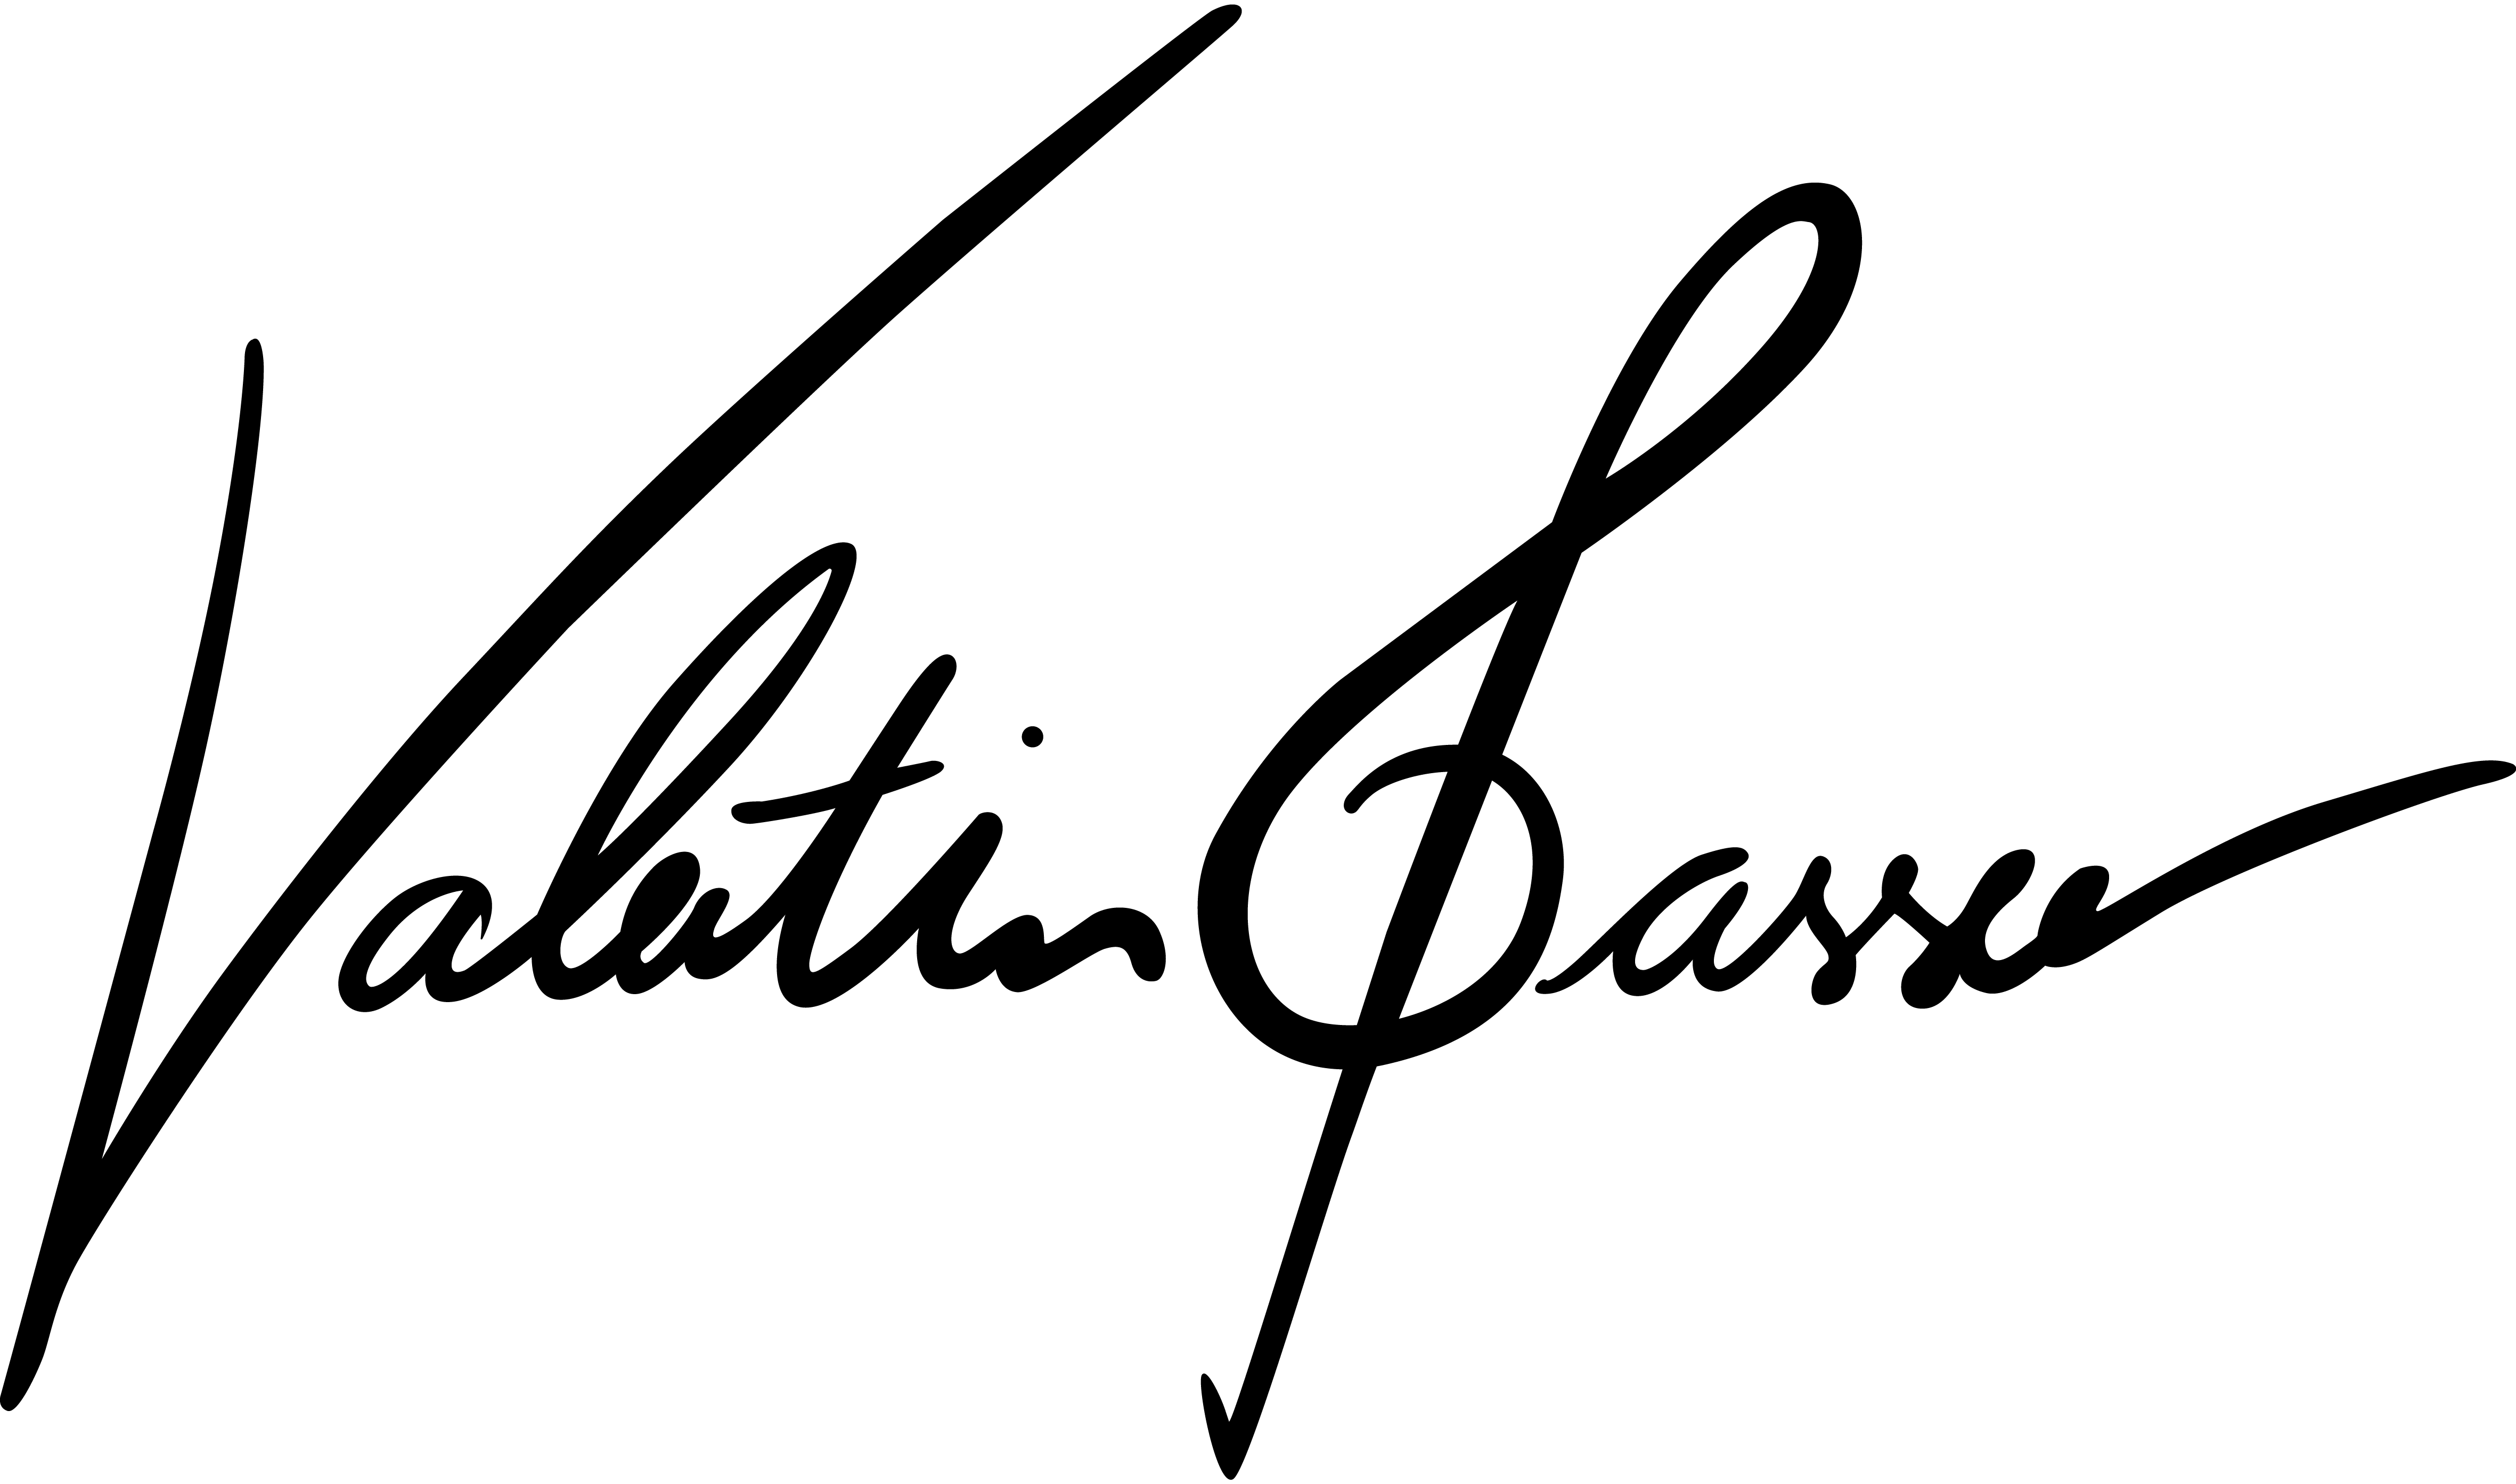 Valentin Gasser